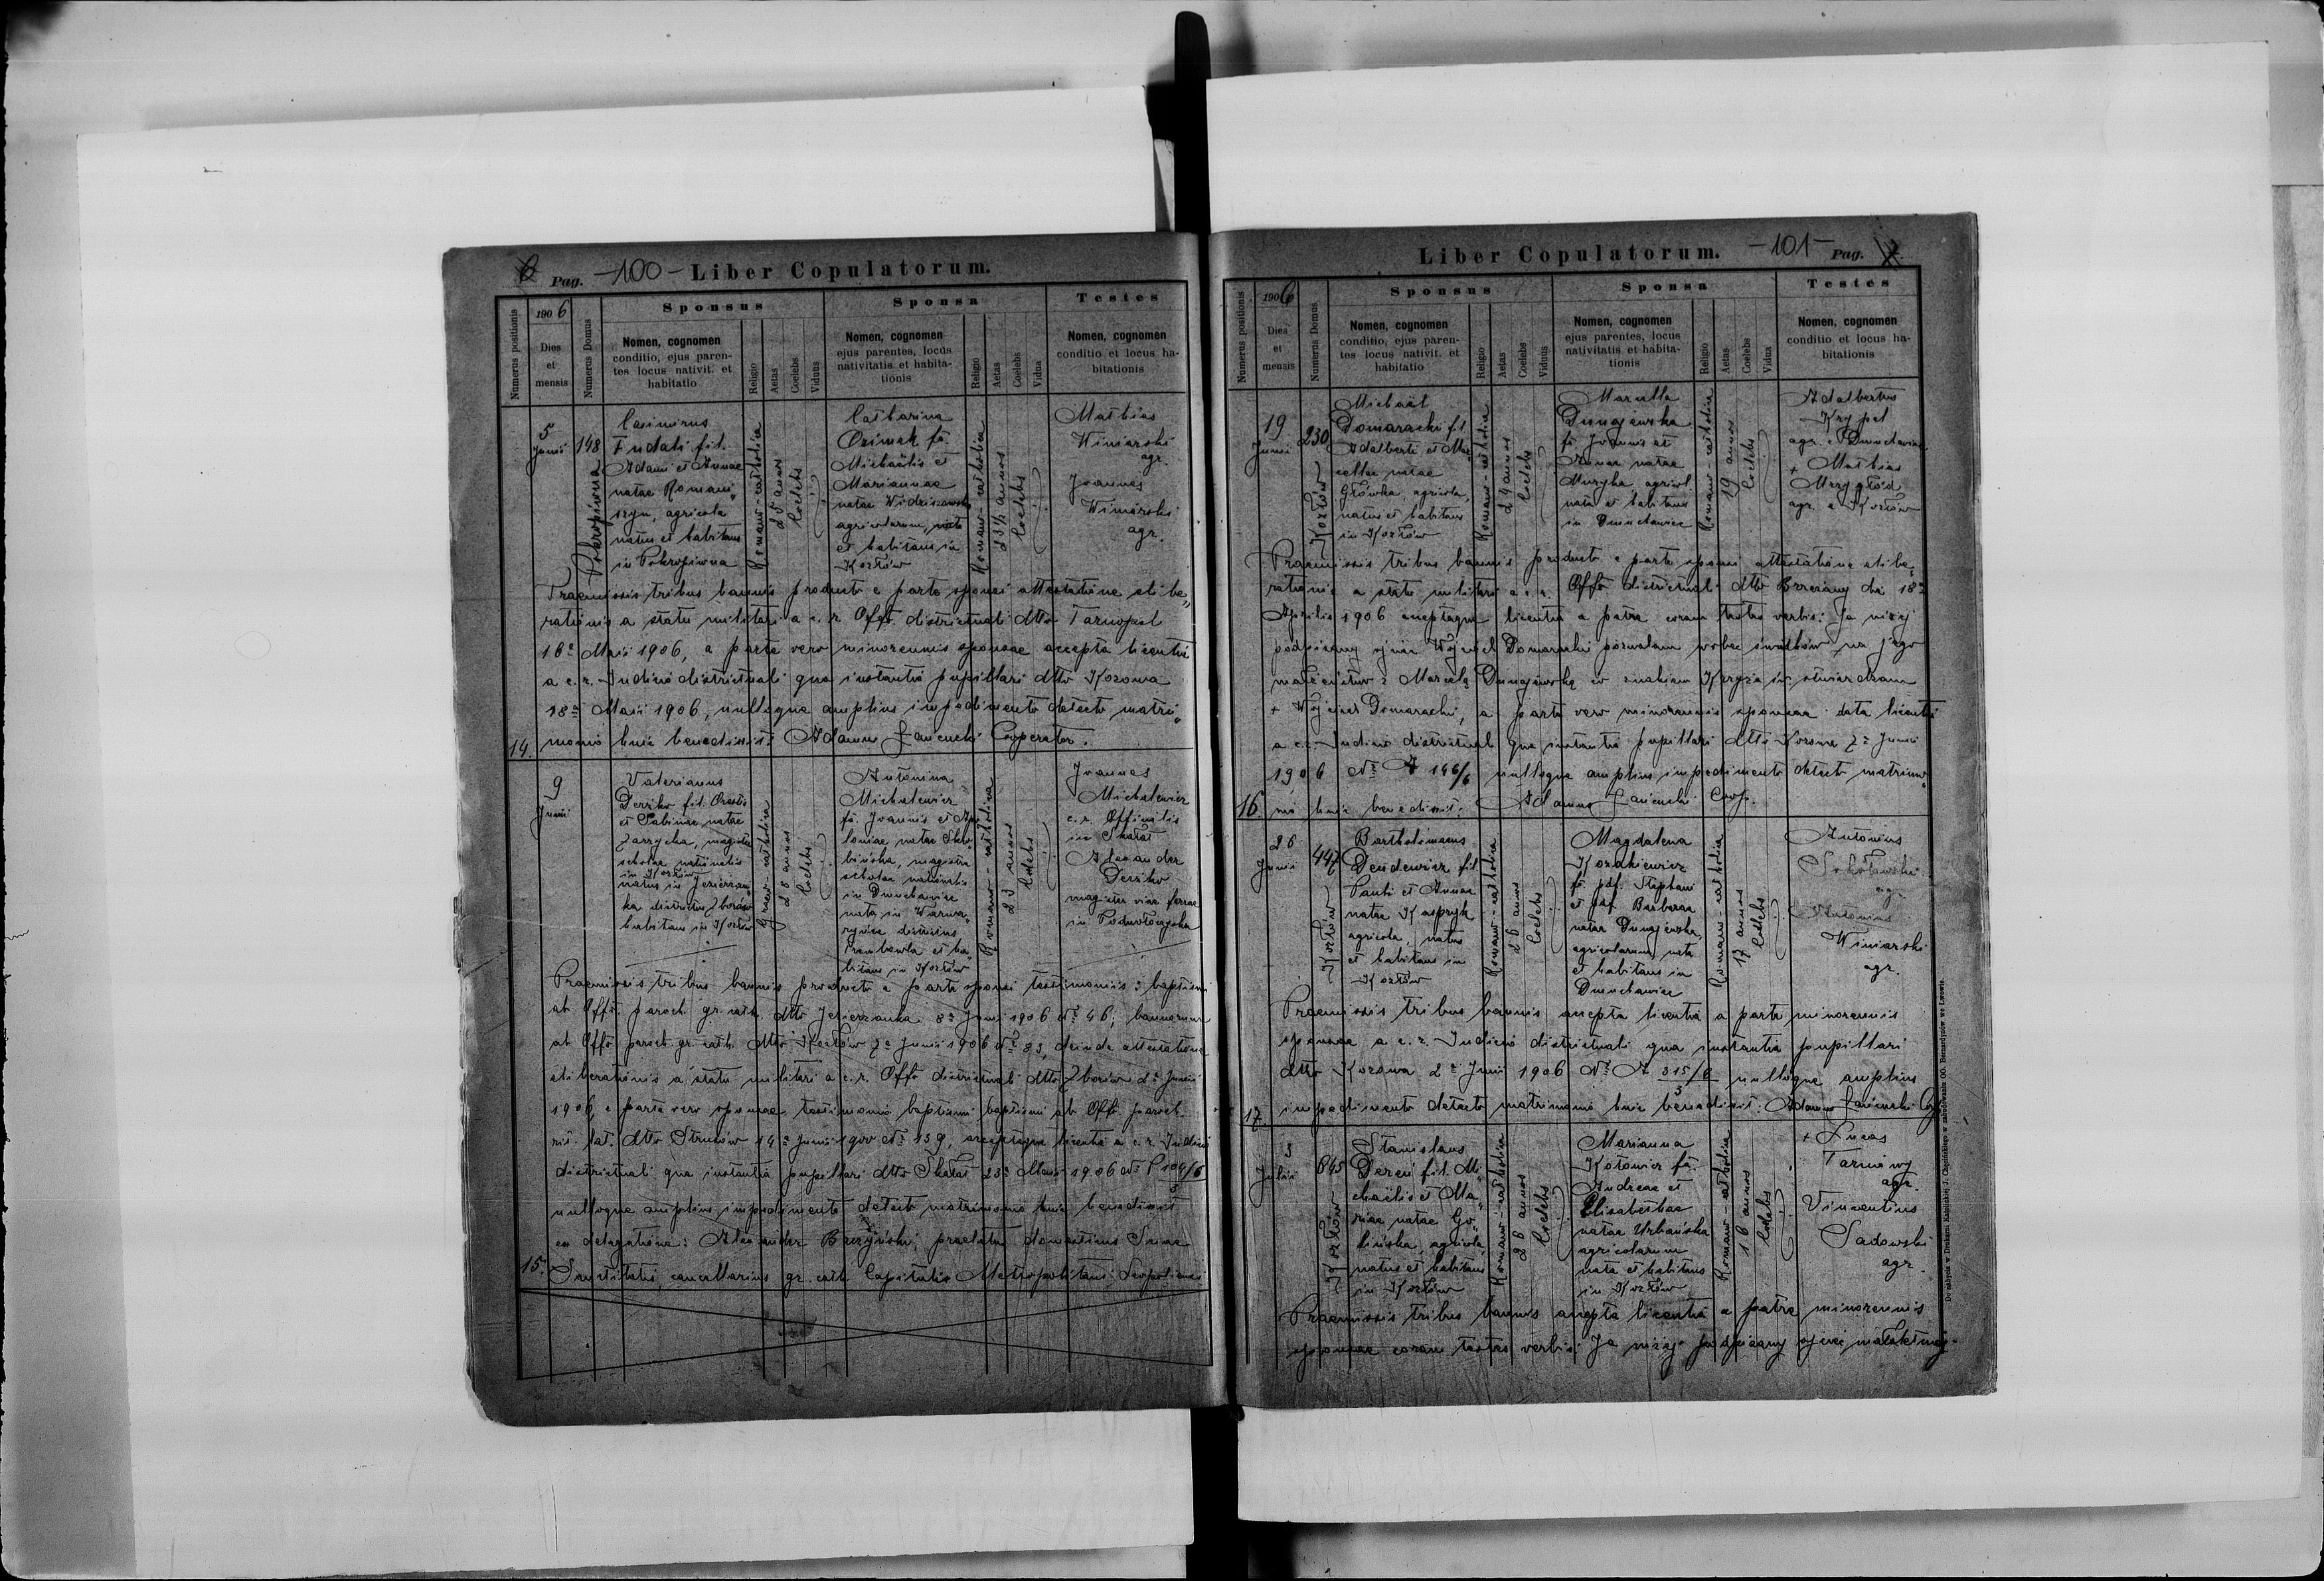 6 Pag. -100- Liber Copulatorum.
Numerus positionis
1906
Dies
et
mensis
Numerus Domus
Sponsus
Nomen, cognomen
conditio, ejus paren-
tes locus nativit. et
habitatio
Religio
Aetas
Coelebs
Viduus
Sponsa
Nomen, cognomen
ejus parentes, locus
nativitatis et habita-
tionis
Religio
Aetas
Coelebs
Vidua
Testes
Nomen, cognomen
conditio et locus ha-
bitationis
5
Junii
148
Pokropiwna
Casimirus
Fudali fil.
Adami et Annae
natae Romani„
szyn, agricola
natus et habitans
in Pokropiwna
Romano-catholica
25 annos
Coelebs
Catharina
Ozimek fa.
Michaëlis et
Mariannae
natae
agricolarum, nata
et habitans in
Kozłów
Romano-catholica
23½ annos
Coelebs
Mathias
Winiarski
agr.
Joannes
Winiarski
agr.
Praemissis tribus bannis producto e parte sponsi attestatione elibe„
rationis a statu militari a c. r. Offo. districtuali dtto Tarnopol
16a Maii 1906, a parte vero minorennis sponsae accepta licentia
a c. r. Judicio districtuali qua instantia pupillari dtto Kozowa
18a Maii 1906, nulloque amplius impedimento detecto matri„
14. monio huic benedixit: Adamus Łańcucki Cooperator.
9
Junii
Valerianus
Derżko fil. Orestis
et Sabinae natae
Zarzycka, magister
scholae nationalis
in Kozłów
natus in Jezierzan„
ka districtus Zborów
habitans in Kozłów
Graeco-catholica
28 annos
Coelebs
Antonina
Michalewicz
fa. Joannis et Apo
loniae natae Skło„
bińska, magistra
scholae nationalis
in Dmuchawiec
nata in Warwa„
ryńce districtus
Trembowla et ha„
bitans in Kozłów
Romano-catholica
23 annos
Coelebs
Joannes
Michalewicz
c. r. Officialis
in Skałat
Alexander
Derżko
magister viae ferreae
in Podwołoczyska
Praemissis tribus bannis producto e parte sponsi testimoniis: baptismi
ab Offo. paroch. gr. cath. dtto Jezierzanka 8a Junii 1906 No 46; bannorum
ab Offo paroch. gr. cath. dtto Kozłów 7a Junii 1906 No 83, deinde attestatione
eliberationis a statu militari a c. r. Offo districtuali dtto Zborów 2a Junii
1906, e parte vero sponsae testimonio baptismi baptismi ab Offo. paroch.
rit. lat. dtto Strusów 14a Junii 1900 No 139, acceptaque licentia a c. r. Judicio
districtuali qua instantia pupillari dtto Skałat 23a Maii 1906 No P 104/6
nulloque amplius impedimento detecto matrimonio huic benedixit
ex delegatione: Alexander Baczyński, praelatus domesticus Suae
15. Sanctitatis, cancellarius gr. cath. Capituli Metropolitani Leopoliensis
Liber Copulatorum. -101- Pag. 7.
Numerus positionis
1906
Dies
et
mensis
Numerus Domus
Sponsus
Nomen, cognomen
conditio, ejus paren-
tes locus nativit. et
habitatio
Religio
Aetas
Coelebs
Viduus
Sponsa
Nomen, cognomen
ejus parentes, locus
nativitatis et habita-
tionis
Religio
Aetas
Coelebs
Vidua
Testes
Nomen, cognomen
conditio et locus ha-
bitationis
19
Junii
230
Kozłów
Michaël
Domaracki fil.
Adalberti et Mar„
cellae natae
Główka, agricola,
natus et habitans
in Kozłów
Romano-catholica
24 annos
Coelebs
Marcella
Dunajewska
fa. Joannis et
Annae natae
Muzyka, agricol.
nata et habitans
in Dmuchawiec
Romano-catholica
19 annos
Coelebs
Adalbertus
Krypel
agr. e Dmuchawiec
+ Mathias
Mrzygłód
agr. e Kozłów
Praemissis tribus bannis producto e parte sponsi attestatione elibe„
rationis a statu militari a c. r. Offo districtuali dtto Brzeżany die 18a
Aprilis 1906 acceptaque licentia a patre coram testes verbis: Ja niżej
podpisany ojciec Wojciech Domaracki pozwalam wobec świadków na jego
małżeństwo z Marcelą Dunajewską co znakiem Krzyża św. stwierdzam
+ Wojciech Domaracki, a parte vero minorennis sponsae data licentia
a c. r. Judicio districtuali qua instantia pupillari dtto Kozowa 7a Junii
1906 No A 146/6 nulloque amplius impedimento detecto matrimo„
16. nio huic benedixit: Adamus Łańcucki Coop.
26
Junii
447
Kozłów
Bartholomaeus
Dendewicz fil.
Pauli et Annae
natae Kaspryk
agricola, natus
et habitans in
Kozłów
Romano-catholica
26 annos
Coelebs
Magdalena
Kozakiewicz
fa pdf. Stephani
et pdf. Barbarae
natae Dunajewska,
agricolarum, nata
et habitans in
Dmuchawiec
Romano-catholica
17 annos
Coelebs
Antonius
Sokołowski
agr.
Antonius
Winiarski
agr.
Praemissis tribus bannis accepta licentia a parte minorennis
sponsae a c. r. Judicio districtuali qua instantia pupillari
dtto Kozowa 2a Junii 1906 No A 315/6 nulloque amplius
3
17. impedimento detecto matrimonio huic benedixit: Adamus Łańcucki Coop.
3
Julii
845
Kozłów
Stanislaus
Dereń fil. Mi„
chaëlis et Ma„
riae natae Go„
lińska, agricola,
natus et habitans
in Kozłów
Romano-catholica
26 annos
Coelebs
Marianna
Kotowicz fa.
Andreae et
Elisabethae
natae Urbańska
agricolarum
nata et habitans
in Kozłów
Romano-catholica
16 annos
Coelebs
+ Lucas
Tarnowy
agr.
Vincentius
Sadowski
agr.
Praemissis tribus bannis accepta licentia a patre minorennis
sponsae coram testes verbis: Ja niżej podpisany ojciec małoletniej
Do nabycia w Drukarni Katolickiej J. Chęcińskiego w zabudowaniu OO. Bernardynów we Lwowie.